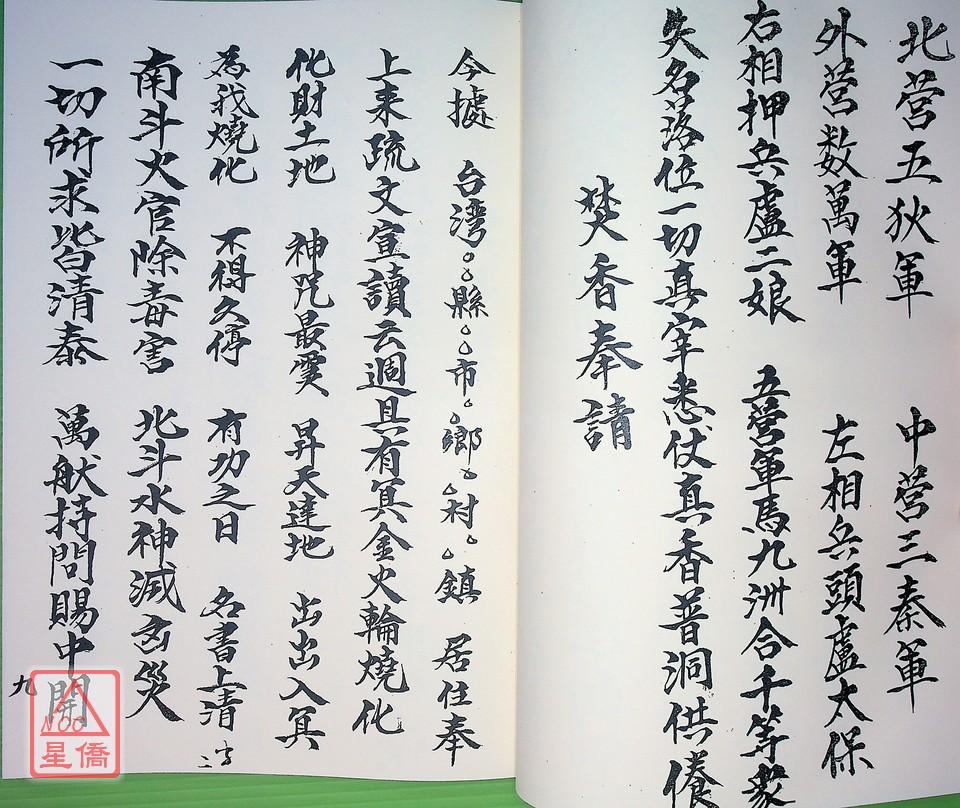 北营五狄軍　中营三秦軍
外营数萬軍　左相兵頭盧太保
右相押兵盧二娘　五营軍馬九洲合千等衆
失名落位一切真宰悉仗真香普洞供養
焚香奉請
今據　台湾。。縣。。市。鄉。。村。鎮　居住奉
上来疏文宣讀云週具有冥金火輪燒化
化財土地　神咒最灵　昇天達地　出出入冥
為我燒化　不得久停　有功之日　名書上清
南斗火官除毒害　北斗水神滅凶災
一切所求皆清泰　萬般持問賜中開
九
NCC
星僑